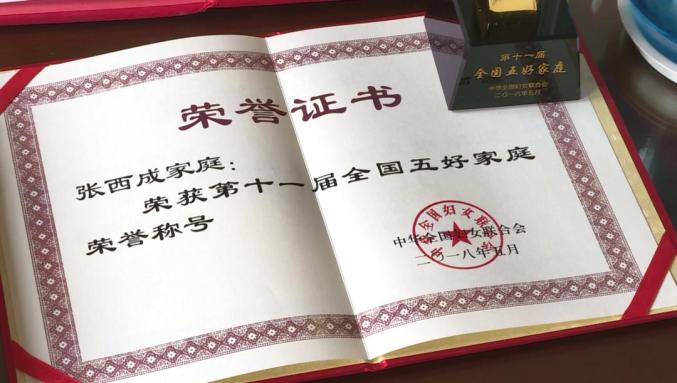 第十一届
全国五好家庭
中华全国妇女联合会
二〇一八年五月
荣誉证书
张西成家庭：
荣获第十一届全国五好家庭
荣誉称号
中华全国妇女联合会
二〇一八年五月